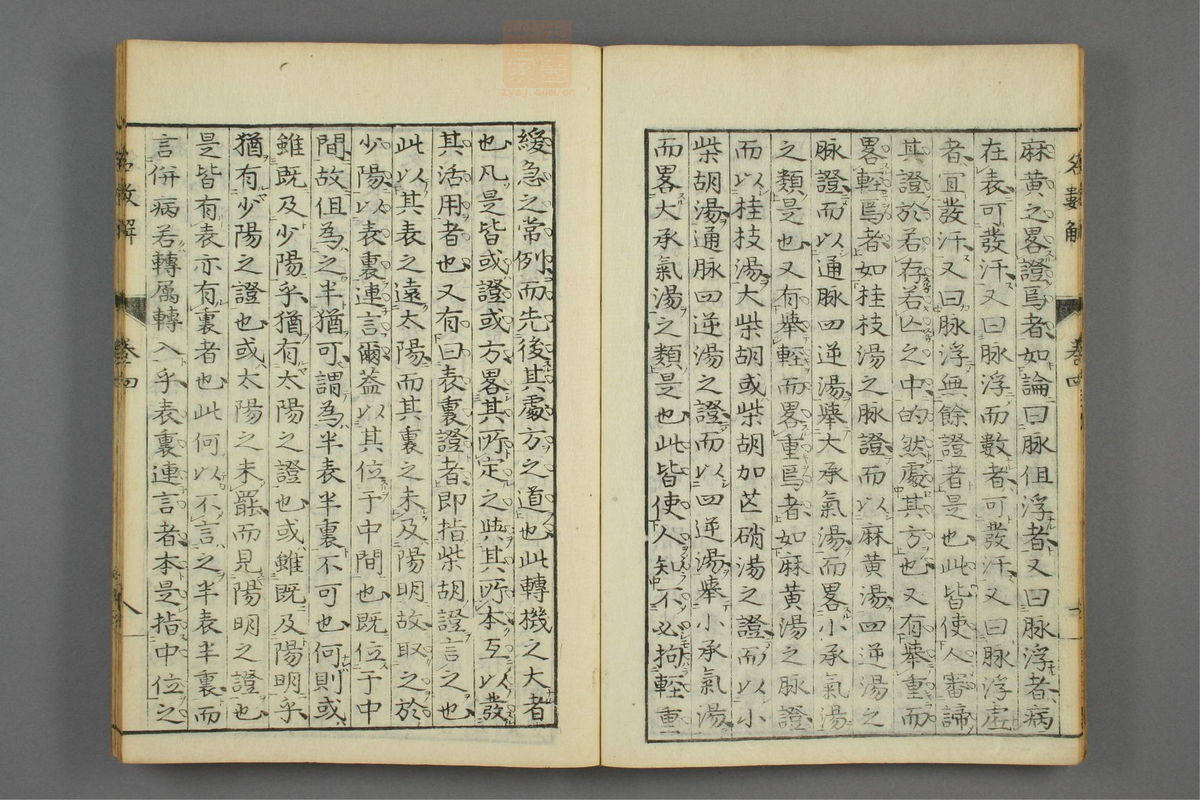 麻黄之畧證焉者如論曰脉但浮者又曰脉浮者病
在表可發汗又曰脉浮而數者可發汗又曰脉浮虛
者宜發汗又曰脉浮無餘證者是也此皆使人審諦
其證於若存若亾之中的然處其方也又有擧重而
畧輕焉者如桂枝湯之脉證而以麻黄湯四逆湯之
脉證而以通脉四逆湯擧大承氣湯而畧小承氣湯
之類是也又有擧輕而畧重焉者如麻黄湯之脉證
而以桂技湯大柴胡或柴胡加芒硝湯之證而以小
柴胡湯通脉四逆湯之證而以四逆湯擧小承氣湯
而畧大承氣湯之類是也此皆使人知不必拘輕重
緩急之常例而先後其處方之道也此轉機之大者
也凡是皆或證或方畧其所定之與其所本互以發
其活用者也又有曰表裏證者即指柴胡證言之也
此以其表之遠太陽而其裏之未及陽明故取之於
少陽以表裏連言爾蓋以其位于中間也既位于中
間故但為之半猶可謂為半表半裏不可也何則或
雖既及少陽乎猶有太陽之證也或雖既及陽明乎
猶有少陽之證也或太陽之未罷而見陽明之證也
是皆有表亦有裏者也此何以不言之半表半裏而
言併病若轉属轉入乎表裏連言者本是指中位之
名數解
卷四